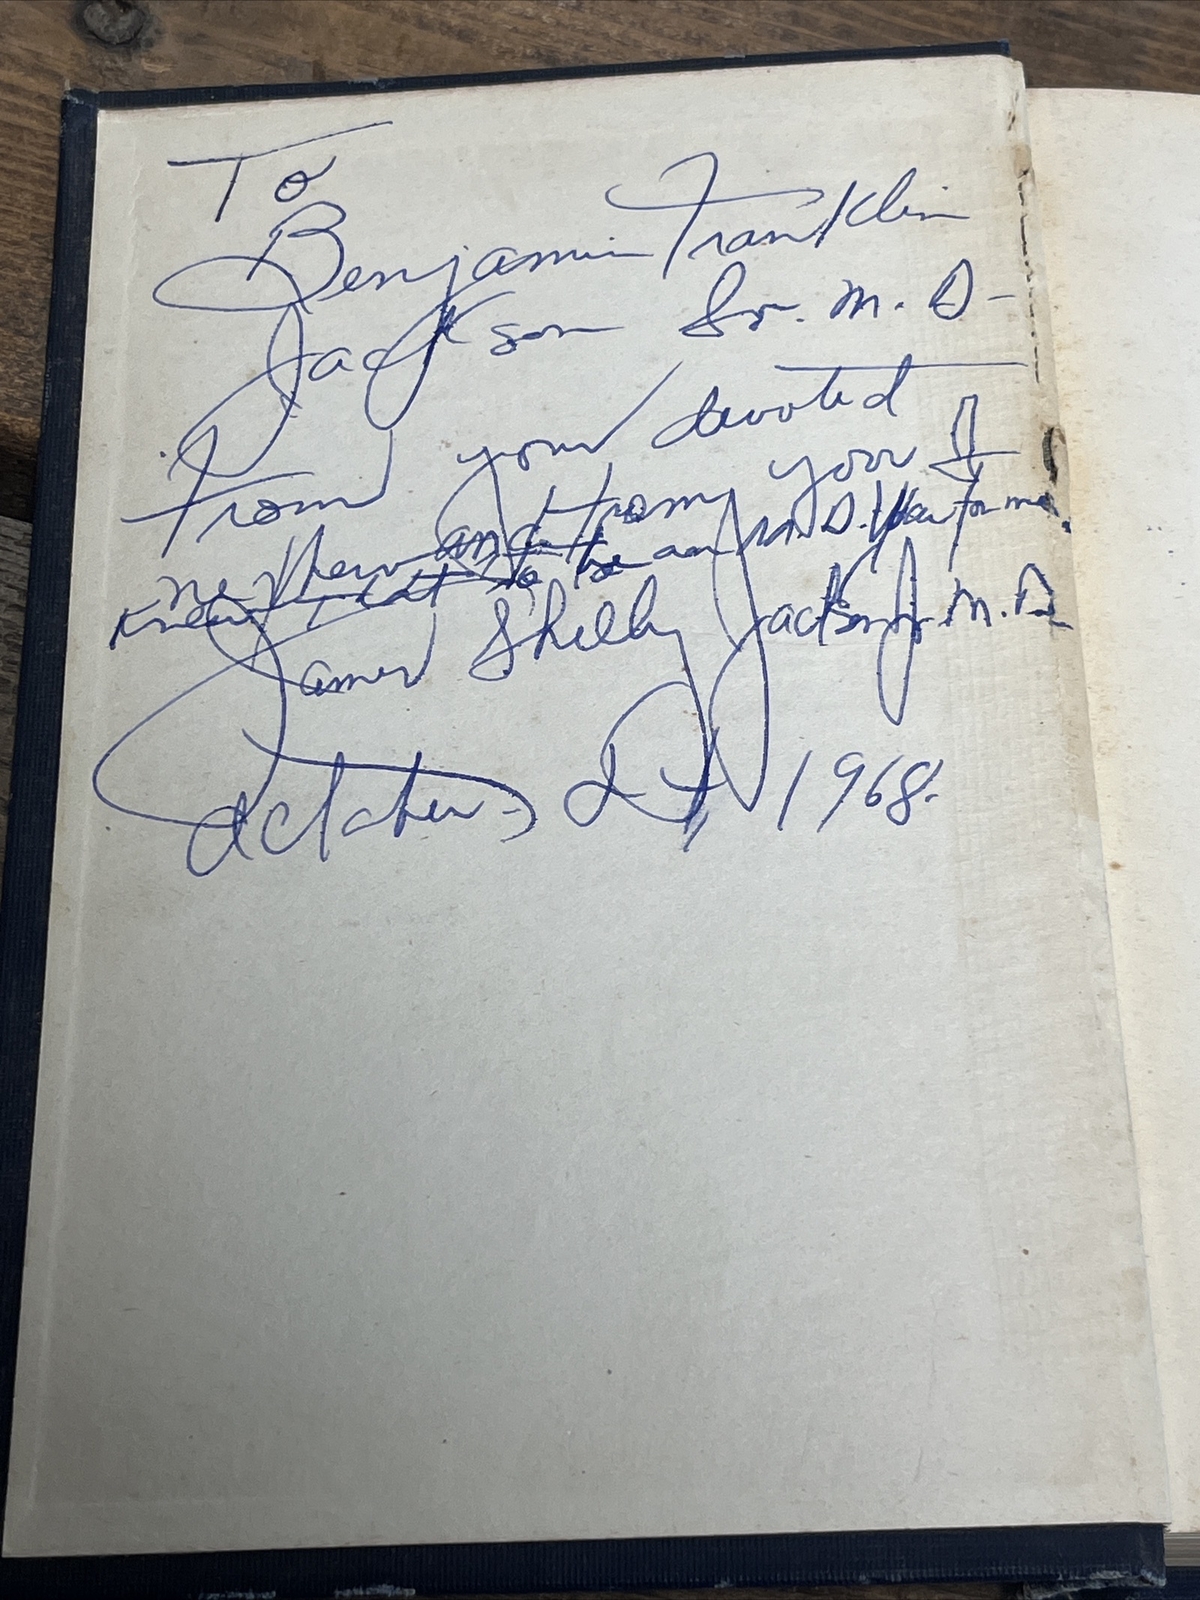 To
Benjamin Franklin
Jackson Sr. M. D-
From your devoted
nephew and from you I
Knew that to be an M. D. was for me.
James Shelby Jackson Jr. M. D.
October, 1968.